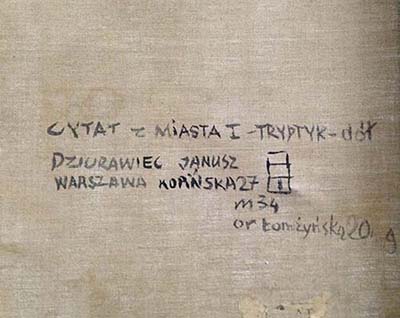 CYTAT z MIASTA I -TRYPTYK- dół
DZIURAWIEC JANUSZ
WARSZAWA KOPIŃSKA 27
m 34
or Łomżyńska 20